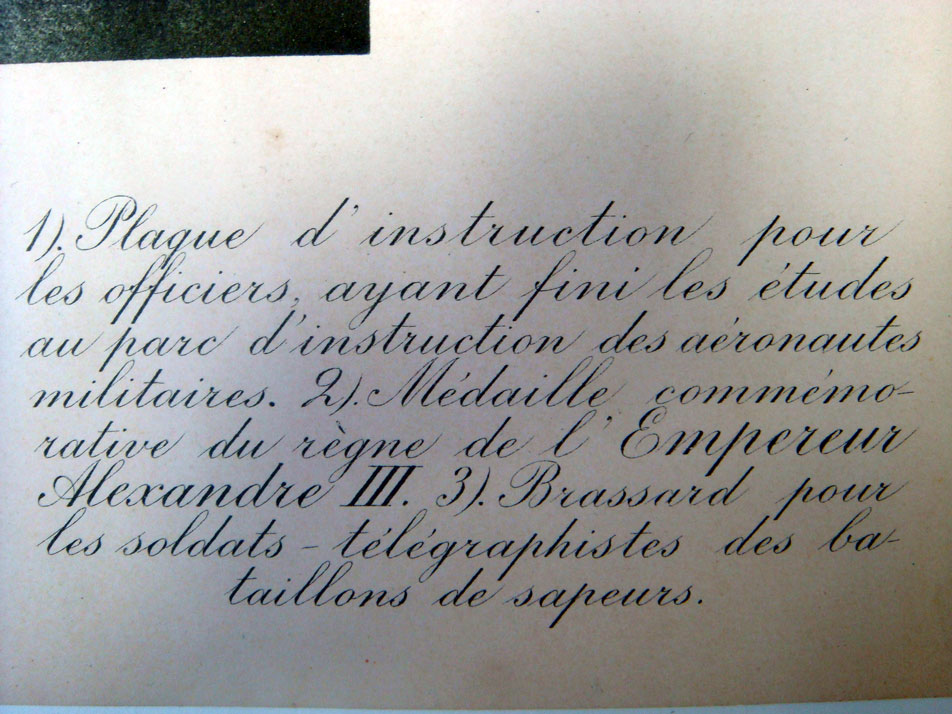 1). Plaque d'instruction pour
les officiers, ayant fini les études
au parc d'instruction des aéronautes
militaires. 2). Médaille commémo-
rative du règne de l'Empereur
Alexandre III. 3). Brassard pour
les soldats - télégraphistes des ba-
taillons de sapeurs.